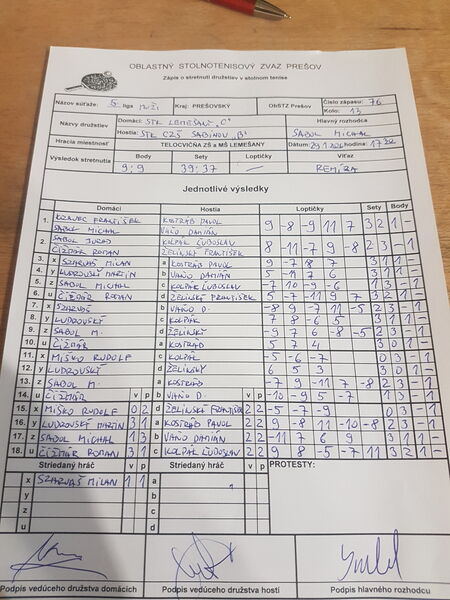 OBLASTNÝ STOLNOTENISOVÝ ZVÄZ PREŠOV
Zápis o stretnutí družstiev v stolnom tenise
Názov súťaže: 5. liga muži Kraj: PREŠOVSKÝ ObSTZ Prešov Číslo zápasu: 76
Kolo: 13
Názvy družstiev Domáci: STK LEMEŠANY "C" Hlavný rozhodca
Hostia: STK CZŠ SABINOV "B" SABOL MICHAL
Hracia miestnosť TELOCVIČŇA ZŠ a MŠ LEMEŠANY Dátum: hodina:
Výsledok stretnutia Body Sety Loptičky Víťaz
9:9 39:37 REMÍZA
Jednotlivé výsledky
Domáci Hostia Loptičky Sety Body
1. FRANTIŠEK KOSTRÁB PAVOL 9 -8 -9 11 7 3 2 1 -
SABOL MICHAL VAŇO DAMIÁN
2. SABOL JURAJ KOLPÁK ĽUBOSLAV 8 -11 -7 9 -8 2 3 - 1
ČIŽMÁR ROMAN ŽELINSKÝ FRANTIŠEK
3. x SZARVAŠ MILAN a KOSTRÁB PAVOL 9 -7 18 7 3 1 1 -
4. y LUDROVSKÝ MARTIN b VAŇO DAMIÁN 5 -11 7 6 3 1 1 -
5. z SABOL MICHAL c KOLPÁK ĽUBOSLAV -7 10 -9 -6 1 3 - 1
6. u ČIŽMÁR ROMAN d ŽELINSKÝ FRANTIŠEK 5 -7 -11 9 7 3 2 1 -
7. x SZARVAŠ b VAŇO D. -8 9 -7 11 -5 2 3 - 1
8. y LUDROVSKÝ c KOLPÁK 7 8 -6 5 3 1 1 -
9. z SABOL M. d ŽELINSKÝ -9 7 6 -8 -5 2 3 - 1
10. u ČIŽMÁR a KOSTRÁB 5 7 4 3 0 1 -
11. x MIŠKO RUDOLF c KOLPÁK -5 -6 -7 0 3 - 1
12. y LUDROVSKÝ d ŽELINSKÝ 6 5 3 3 0 1 -
13. z SABOL M. a KOSTRÁB -7 9 -11 7 -8 2 3 - 1
14. u ČIŽMÁR v p b VAŇO D. v p -10 -9 5 -7 1 3 - 1
15. x MIŠKO RUDOLF 0 2 d ŽELINSKÝ FRANTIŠEK 2 2 -5 -7 -9 0 3 - 1
16. y LUDROVSKÝ MARTIN 3 1 a KOSTRÁB PAVOL 2 2 9 -8 11 -10 -8 2 3 - 1
17. z SABOL MICHAL 1 3 b VAŇO DAMIÁN 2 2 -11 7 6 9 3 1 1 -
18. u ČIŽMÁR ROMAN 3 1 c KOLPÁK ĽUBOSLAV 2 2 9 8 -5 -7 11 3 2 1 -
Striedaný hráč v p Striedaný hráč v p PROTESTY:
x SZARVAŠ MILAN 1 1 a
y b
z c
u d
Podpis vedúceho družstva domácich Podpis vedúceho družstva hostí Podpis hlavného rozhodcu